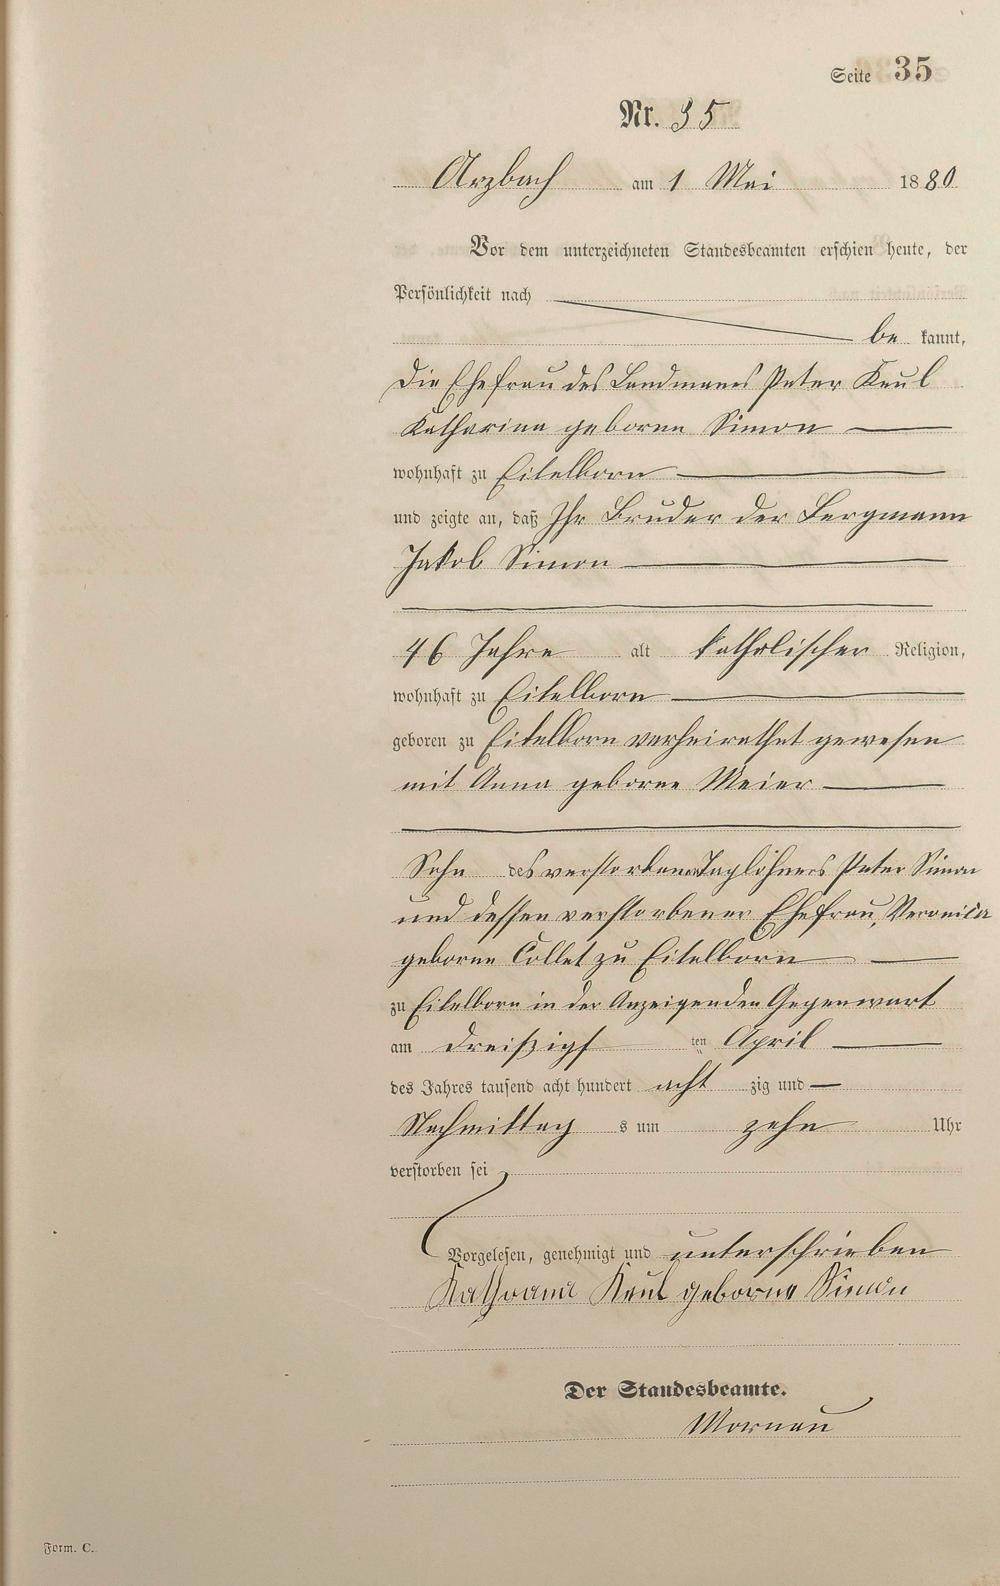 Seite 35
Nr. 35
Arzbach am 1 Mai 1880
Vor dem unterzeichneten Standesbeamten erschien heute, der
Persönlichkeit nach
be kannt,
die Ehefrau des Landmanns Peter Keul
Katharina geborne Simon
wohnhaft zu Eitelborn
und zeigte an, daß Ihr Bruder der Bergmann
Jakob Simon
46 Jahre alt katholischer Religion,
wohnhaft zu Eitelborn
geboren zu Eitelborn verheirathet gewesen
mit Anna geborne Meier
Sohn des verstorbenen Taglöhners Peter Simon
und dessen verstorbener Ehefrau, Veronika
geborne Collet zu Eitelborn
zu Eitelborn in der Anzeigenden Gegenwart
am dreißigsten April
des Jahres tausend acht hundert acht zig und
Nachmittag s um zehn Uhr
verstorben sei
Vorgelesen, genehmigt und unterschrieben
Keul geborne Simon
Der Standesbeamte.
Form. C.